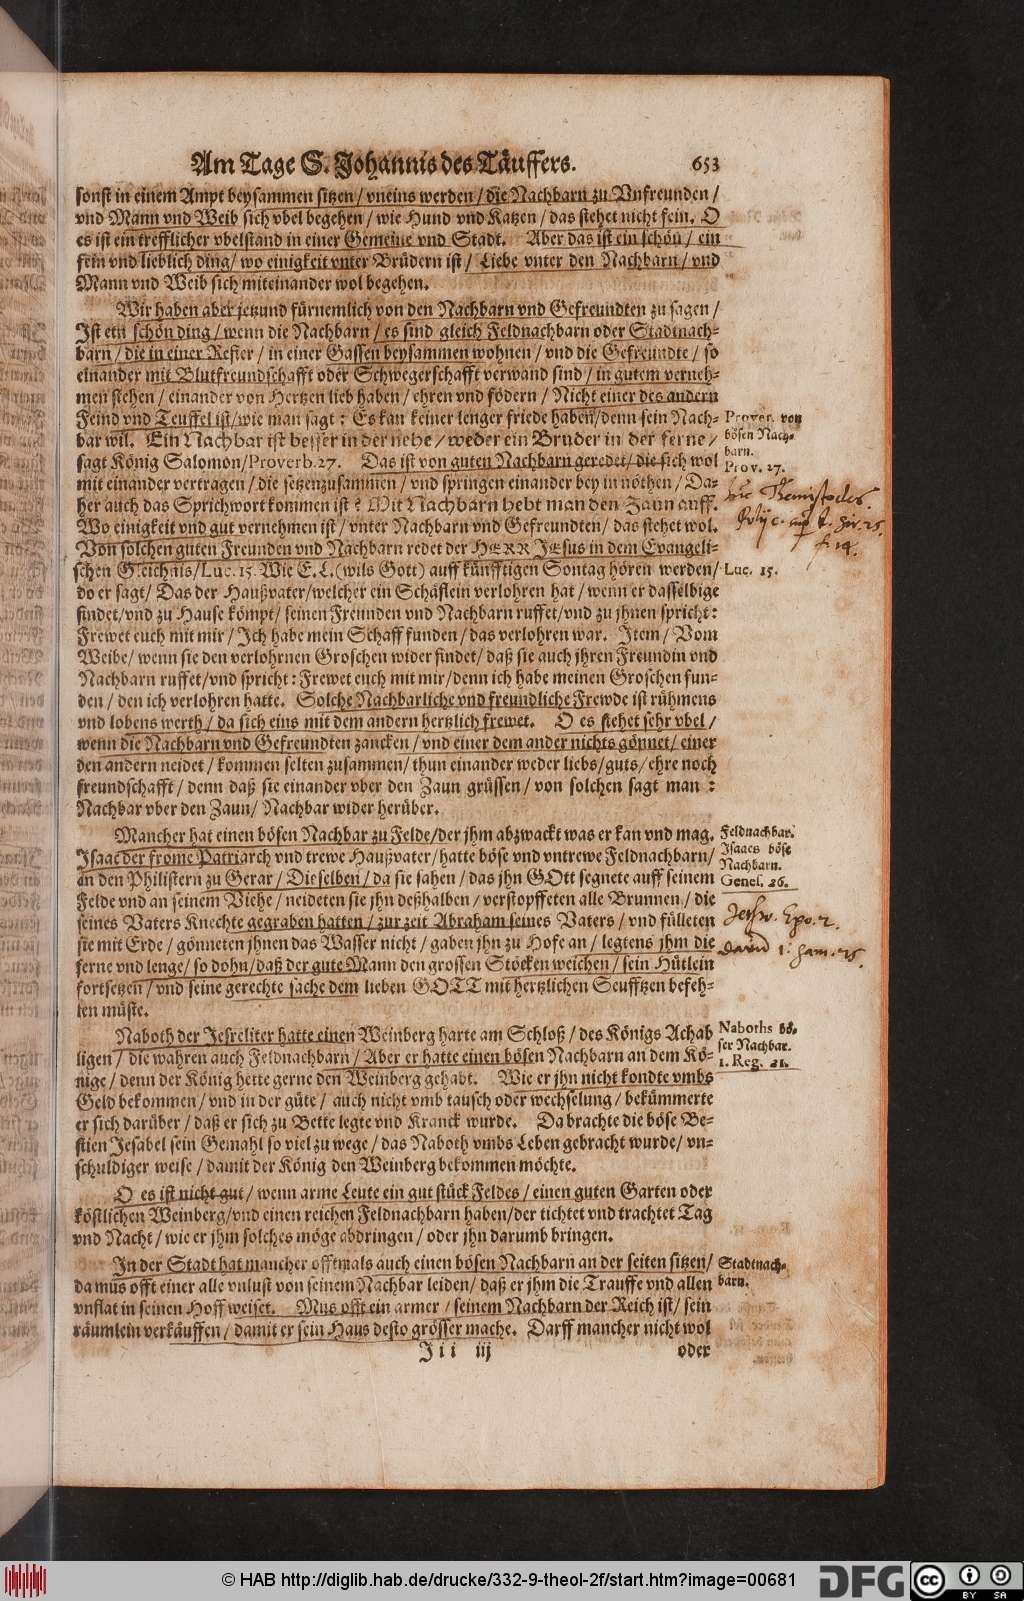 Am Tage S. Johannis des Täuffers. 653
sonst in einem Ampt beysammen sitzen / vneins werden / die Nachbarn zu Vnfreunden /
vnd Mann vnd Weib sich vbel begehen / wie Hund vnd Katzen / das stehet nicht fein. O
es ist ein trefflicher vbelstand in einer Gemeine vnd Stadt. Aber das ist ein schön / ein
fein vnd lieblich ding / wo einigkeit vnter Brüdern ist / Liebe vnter den Nachbarn / vnd
Mann vnd Weib sich miteinander wol begehen.
Wir haben aber jetzund fürnemlich von den Nachbarn vnd Gefreundten zu sagen /
Ist ein schön ding / wenn die Nachbarn / es sind gleich Feldnachbarn oder Stadtnach-
barn / die in einer Refier / in einer Gassen beysammen wohnen / vnd die Gefreundte / so
einander mit Blutfreundschafft oder Schwegerschafft verwand sind / in gutem verneh-
men stehen / einander von Hertzen lieb haben / ehren vnd födern / Nicht einer des andern
Feind vnd Teuffel ist / wie man sagt: Es kan keiner lenger friede haben / denn sein Nach-
bar wil. Ein Nachbar ist besser in der nehe / weder ein Bruder in der ferne /
sagt König Salomon / Proverb. 27. Das ist von guten Nachbarn geredet / die sich wol
mit einander vertragen / die setzen zusammen / vnd springen einander bey in nöthen / Da-
her auch das Sprichwort kommen ist? Mit Nachbarn hebt man den Zaun auff.
Wo einigkeit vnd gut vernehmen ist / vnter Nachbarn vnd Gefreundten / das stehet wol.
Von solchen guten Freunden vnd Nachbarn redet der HERR JEsus in dem Evangeli-
schen Gleichnis / Luc. 15. Wie E. L. (wils Gott) auff künfftigen Sontag hören werden /
do er sagt / Das der Haußvater / welcher ein Schäflein verlohren hat / wenn er dasselbige
findet / vnd zu Hause kömpt / seinen Freunden vnd Nachbarn ruffet / vnd zu jhnen spricht:
Frewet euch mit mir / Ich habe mein Schaff funden / das verlohren war. Item / Vom
Weibe / wenn sie den verlohrnen Groschen wider findet / daß sie auch jhren Freundin vnd
Nachbarn ruffet / vnd spricht: Frewet euch mit mir / denn ich habe meinen Groschen fun-
den / den ich verlohren hatte. Solche Nachbarliche vnd freundliche Frewde ist rühmens
vnd lobens werth / da sich eins mit dem andern hertzlich frewet. O es stehet sehr vbel /
wenn die Nachbarn vnd Gefreundten zancken / vnd einer dem ander nichts gönnet / einer
den andern neidet / kommen selten zusammen / thun einander weder liebs / guts / ehre noch
freundschafft / denn daß sie einander vber den Zaun grüssen / von solchen sagt man:
Nachbar vber den Zaun / Nachbar wider herüber.
Mancher hat einen bösen Nachbar zu Felde / der jhm abzwackt was er kan vnd mag.
Isaac der frome Patriarch vnd trewe Haußvater / hatte böse vnd vntrewe Feldnachbarn /
an den Philistern zu Gerar / Dieselben / da sie sahen / das jhn GOtt segnete auff seinem
Felde vnd an seinem Viehe / neideten sie jhn deßhalben / verstopffeten alle Brunnen / die
seines Vaters Knechte gegraben hatten / zur zeit Abraham seines Vaters / vnd fülleten
sie mit Erde / gönneten jhnen das Wasser nicht / gaben jhn zu Hofe an / legtens jhm die
ferne vnd lenge / so dohn / daß der gute Mann den grossen Stöcken weichen / sein Hütlein
fortsetzen / vnd seine gerechte sache dem lieben GOTT mit hertzlichen Seufftzen befeh-
len müste.
Naboth der Jesreliter hatte einen Weinberg harte am Schloß / des Königs Achab
ligen / die wahren auch Feldnachbarn / Aber er hatte einen bösen Nachbarn an dem Kö-
nige / denn der König hette gerne den Weinberg gehabt. Wie er jhn nicht kondte vmbs
Geld bekommen / vnd in der güte / auch nicht vmb tausch oder wechselung / bekümmerte
er sich darüber / daß er sich zu Bette legte vnd Kranck wurde. Da brachte die böse Be-
stien Jesabel sein Gemahl so viel zu wege / das Naboth vmbs Leben gebracht wurde / vn-
schuldiger weise / damit der König den Weinberg bekommen möchte.
O es ist nicht gut / wenn arme Leute ein gut stück Feldes / einen guten Garten oder
köstlichen Weinberg / vnd einen reichen Feldnachbarn haben / der tichtet vnd trachtet Tag
vnd Nacht / wie er jhm solches möge abdringen / oder jhn darumb bringen.
In der Stadt hat mancher offtmals auch einen bösen Nachbarn an der seiten sitzen /
da mus offt einer alle vnlust von seinem Nachbar leiden / daß er jhm die Trauffe vnd allen
vnflat in seinen Hoff weiset. Mus offt ein armer / seinem Nachbarn der Reich ist / sein
räumlein verkäuffen / damit er sein Haus desto grösser mache. Darff mancher nicht wol
Iii iij oder
Prover. von
bösen Nach-
barn.
Prov. 27.
Themistocles.
Luc. 15.
Feldnachbar.
Isaacs böse
Nachbarn.
Genes. 26.
Jethro. Exo. 2.
David 1. Sam. 25.
Naboths bö-
ser Nachbar.
1. Reg. 21.
Stadtnach-
barn.
© HAB http://diglib.hab.de/drucke/332-9-theol-2f/start.htm?image=00681
DFG
cc BY SA